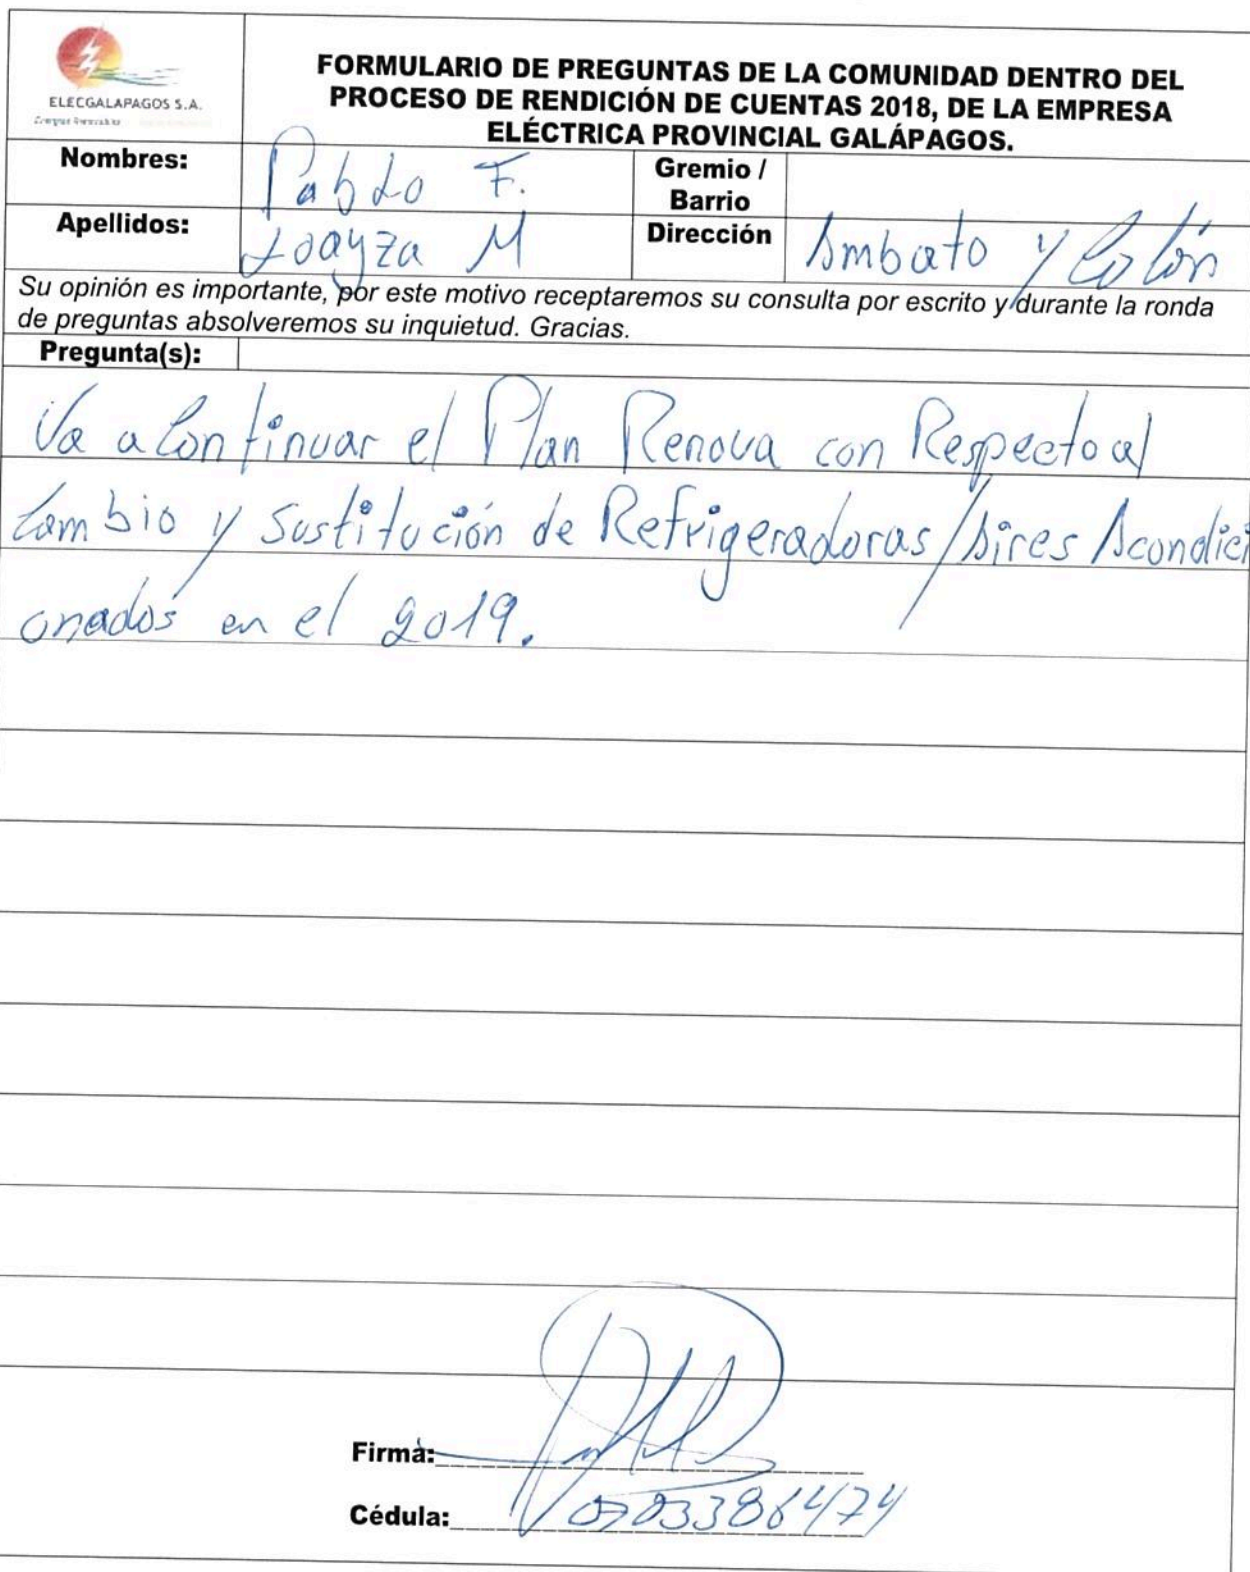 ELECGALAPAGOS S.A.
FORMULARIO DE PREGUNTAS DE LA COMUNIDAD DENTRO DEL
PROCESO DE RENDICIÓN DE CUENTAS 2018, DE LA EMPRESA
ELÉCTRICA PROVINCIAL GALÁPAGOS.
Nombres: Pablo F.
Gremio /
Barrio
Apellidos: Loayza M
Dirección Ambato y Colón
Su opinión es importante, por este motivo receptaremos su consulta por escrito y durante la ronda
de preguntas absolveremos su inquietud. Gracias.
Pregunta(s):
Va a Continuar el Plan Renova con Respecto al
Cambio y Sustitución de Refrigeradoras/Aires Acondici
onados en el 2019.
Firma:
Cédula: 0703386474